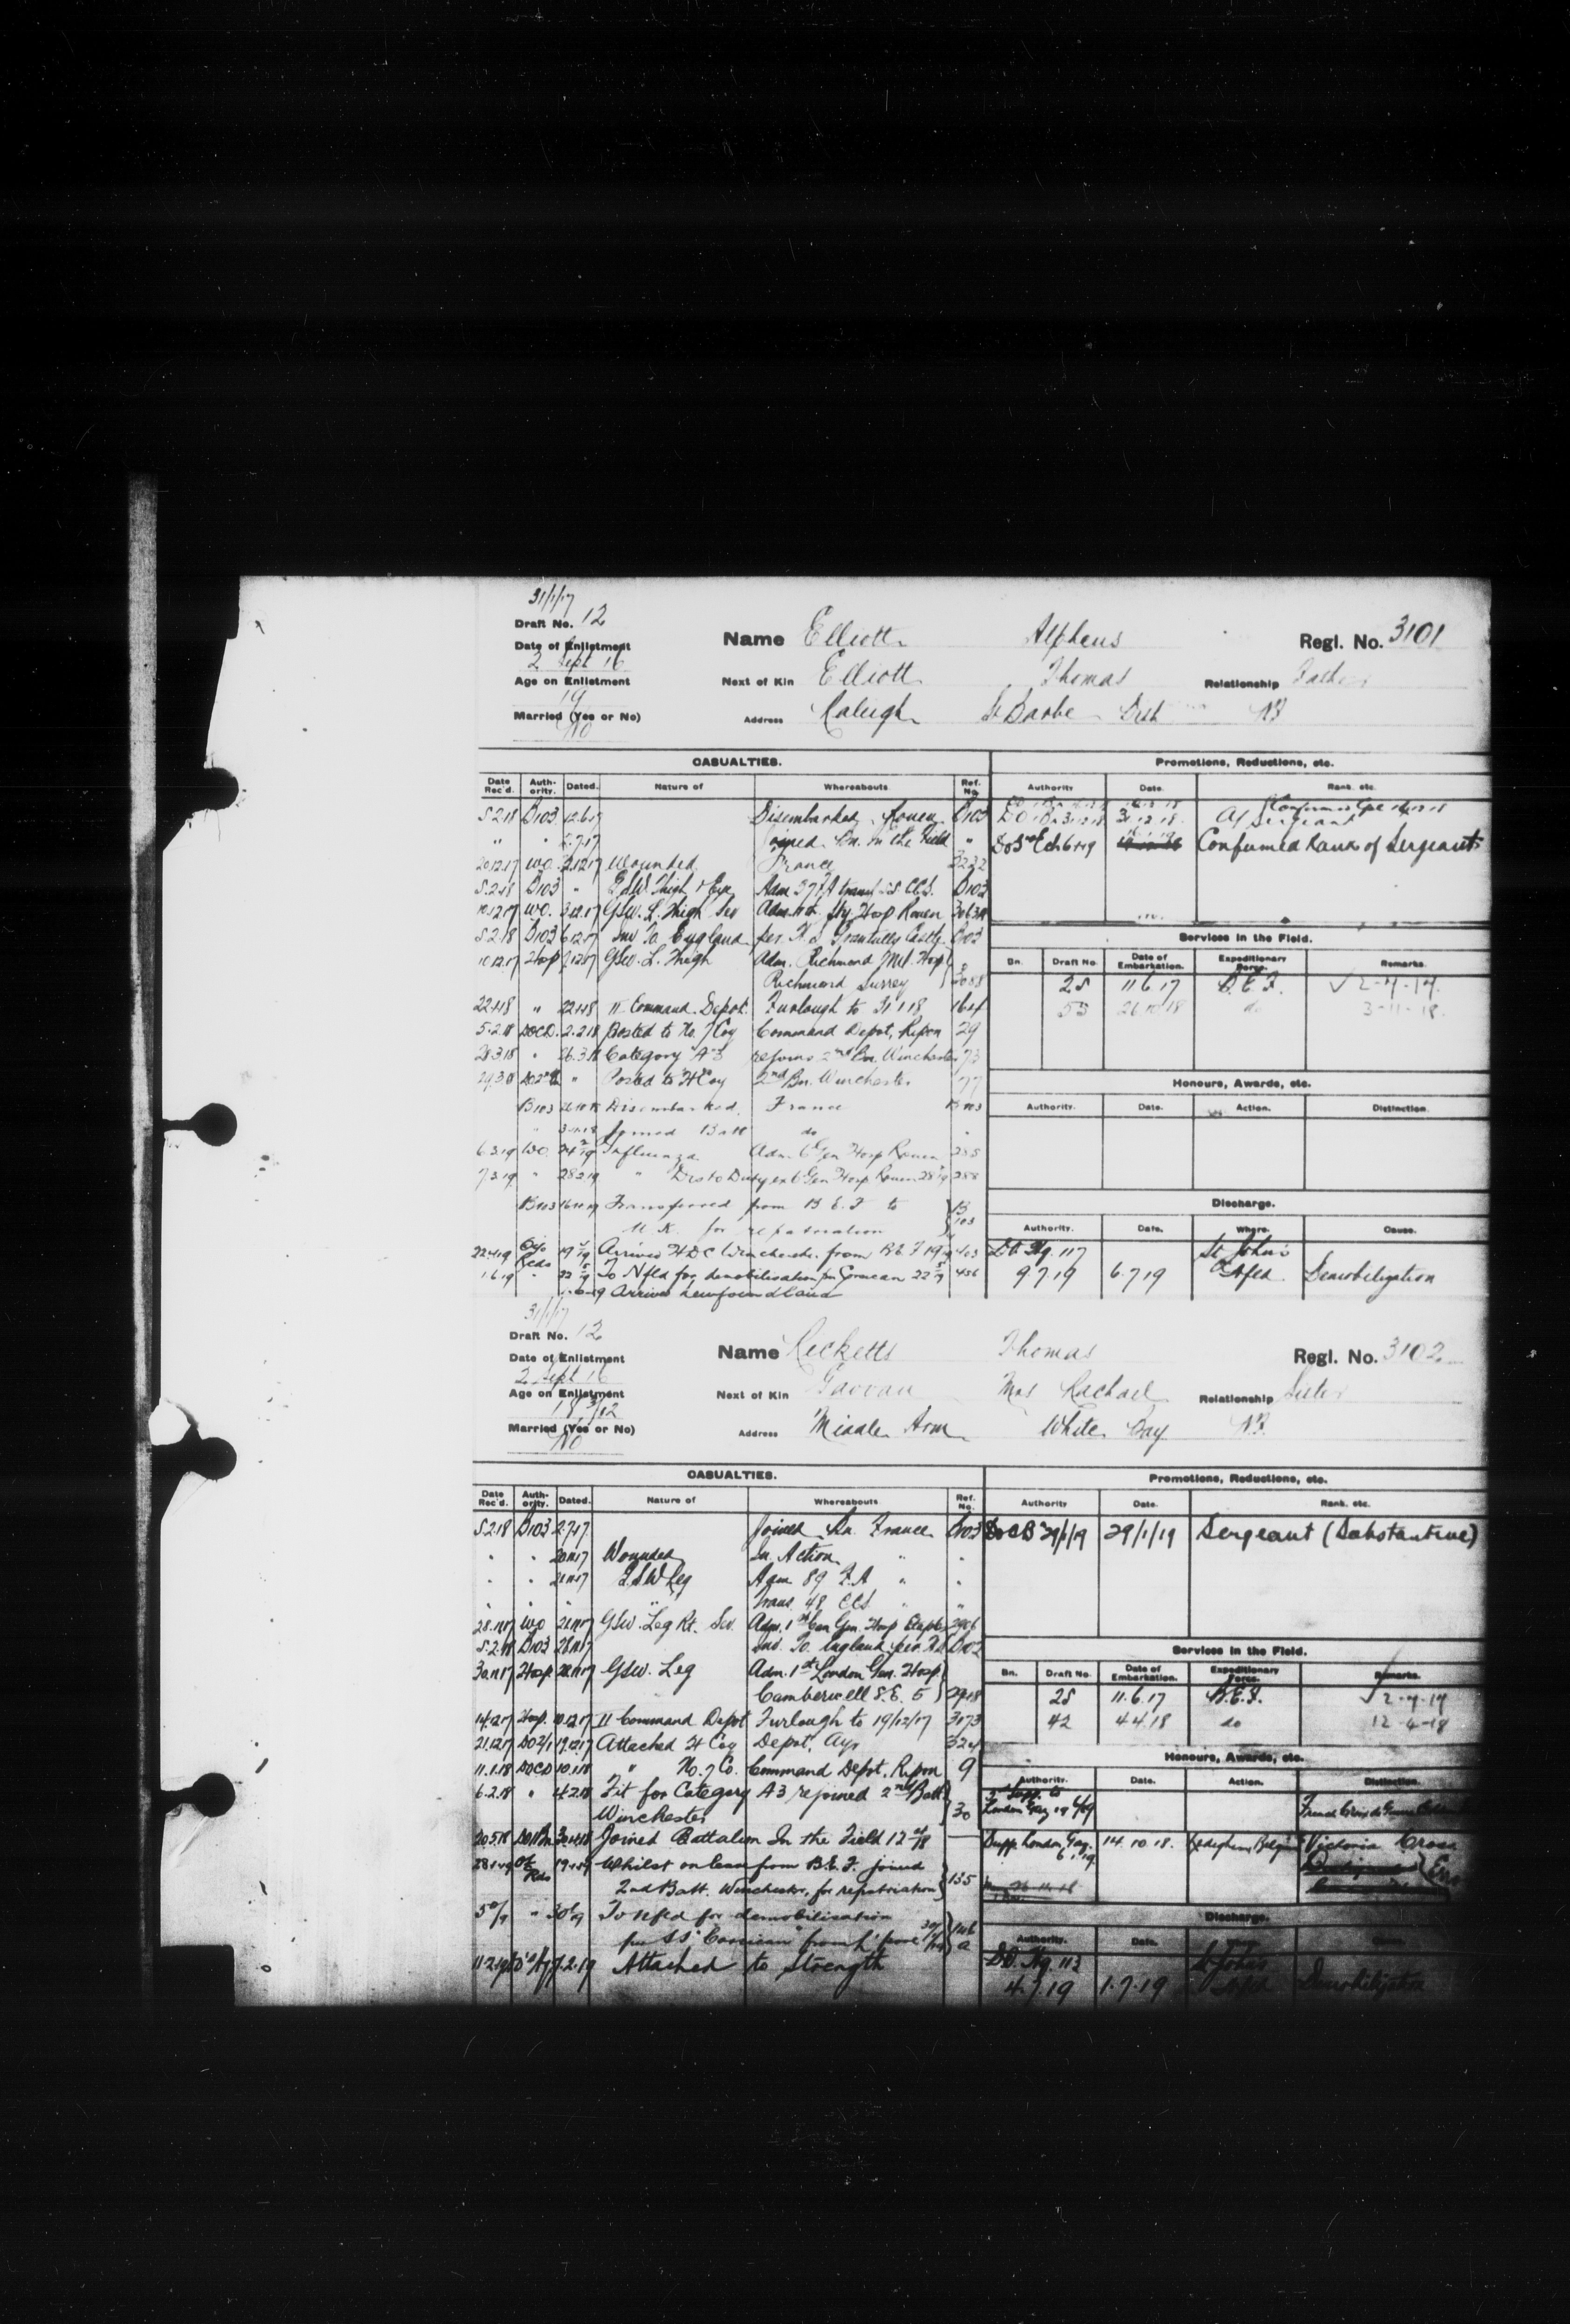 31/1/17
Draft No. 12
Date of Enlistment
2 Sept 16
Age on Enlistment
19
Married (Yes or No)
No
Name Elliott Alpheus Regl. No. 3101
Next of Kin Elliott Thomas Relationship Father
Address Raleigh St Barbe Dist NF
CASUALTIES. Promotions, Reductions, etc.
Date Rec'd. Authority. Dated. Nature of Whereabouts Ref. No. Authority Date. Rank. etc.
5.2.18 B103 12.6.17 Disembarked Rouen B103
" " 2.7.17 Joined Bn. in the Field "
20.12.17 WO. 3.12.17 Wounded France 3232
5.2.18 B103 " G.S.W. Thigh & Eye Adm 37 FA transf CCS. B103
WO. 3.12.17 GSW. L. Thigh Sev Adm Sty. Hosp Rouen
5.2.18 B103 6.12.17 Inv To England per H.S Grantully Castle B103
Hosp 7.12.17 GSW. L. Thigh Adm. Richmond Mil. Hosp
Richmond Surrey 3088
22.1.18 " 22.1.18 11 Command Depot Furlough to 31.1.18 164
5.2.18 DOCD. 2.2.18 Posted to No. 7 Coy Command Depot, Ripon 29
28.3.18 " 26.3.18 Category A3 rejoins 2nd Bn. Winchester 73
29.3.18 " Posted to H Coy 2nd Bn. Winchester 77
B103 26.10.18 Disembarked France B103
" 3.11.18 Joined Batt do "
6.3.19 WO. 24 2/19 Influenza Adm. 6 Gen Hosp Rouen 285
7.3.19 " 28.2.19 " Dis to Duty ex 6 Gen Hosp Rouen 288
B103 Transferred from B.E.F to B
U.K. for repatriation 103
22.4.19 Recds Arrived H D C Winchester from B.E.F 403
1.6.19 " 22 5/19 To Nfld for demobilisation per Corsican 22 5/19 436
Arrived Newfoundland
Sergeant
Confirmed Rank of Sergeant
Services in the Field.
Bn. Draft No. Date of Embarkation. Expeditionary Force. Remarks.
25 11.6.17 B.E.F. √ 2-7-17.
55 26 10 18 do 3-11-18.
Honours, Awards, etc.
Authority. Date. Action. Distinction.
Discharge.
Authority. Date. Where. Cause.
D.O. Hq. 117 St John's
9.7.19 6.7.19 Nfld Demobilization
31/1/17
Draft No. 12
Date of Enlistment
2 Sept 16
Age on Enlistment
18 3/12
Married (Yes or No)
No
Name Ricketts Thomas Regl. No. 3102
Next of Kin Gavvan Mrs Rachael Relationship Sister
Address Middle Arm White Bay NF
CASUALTIES. Promotions, Reductions, etc.
Date Rec'd. Authority. Dated. Nature of Whereabouts Ref. No. Authority Date. Rank. etc.
5.2.18 B103 2.7.17 Joined Bn. France B103 29/1/19 29/1/19 Sergeant (Substantive)
" " 20.11.17 Wounded In Action " "
" " 21.11.17 G.S.W Leg Adm 89 F.A " "
" " " " Trans. 48 CCS " "
28.11.17 WO GSW. Leg Rt. Sev. Adm. 1st Can Gen. Hosp Etaples 2906
5.2.18 B103 28.11.17 Inv. To England per H.S B103
30.11.17 Hosp 28.11.17 GSW. Leg Adm. 1st London Gen. Hosp
Camberwell S.E. 5 2918
14.12.17 Hosp. 10.12.17 11 Command Depot Furlough to 19/12/17 3173
21.12.17 DO2/1 19.12.17 Attached H Coy Depot, Ayr
11.1.18 DOCD 10.1.18 " No. 7 Co. Command Depot, Ripon 9
6.2.18 " 4.2.18 Fit for Category A3 rejoined 2nd Batt
Winchester 30
20.5.18 30.4.18 Joined Battalion In the Field 12 4/18
28.1.19 Rds 19.1.19 Whilst on leave from B.E.F. joined
2nd Batt. Winchester, for repatriation 135
" To Nfld for demobilisation
per SS "Corsican" from L'pool
7.2.19 Attached to Strength
Services in the Field.
Bn. Draft No. Date of Embarkation. Expeditionary Force. Remarks.
25 11.6.17 B.E.F. √ 2-7-17
42 4.4.18 do 12-4-18
Honours, Awards, etc.
Authority. Date. Action. Distinction.
London Gaz
Supp. London Gaz. 14.10.18. Ledeghem Belgium Victoria Cross
Discharge.
Authority. Date.
D.O. Hq. 113 St Johns
4.7.19 1.7.19 Nfld Demobilization